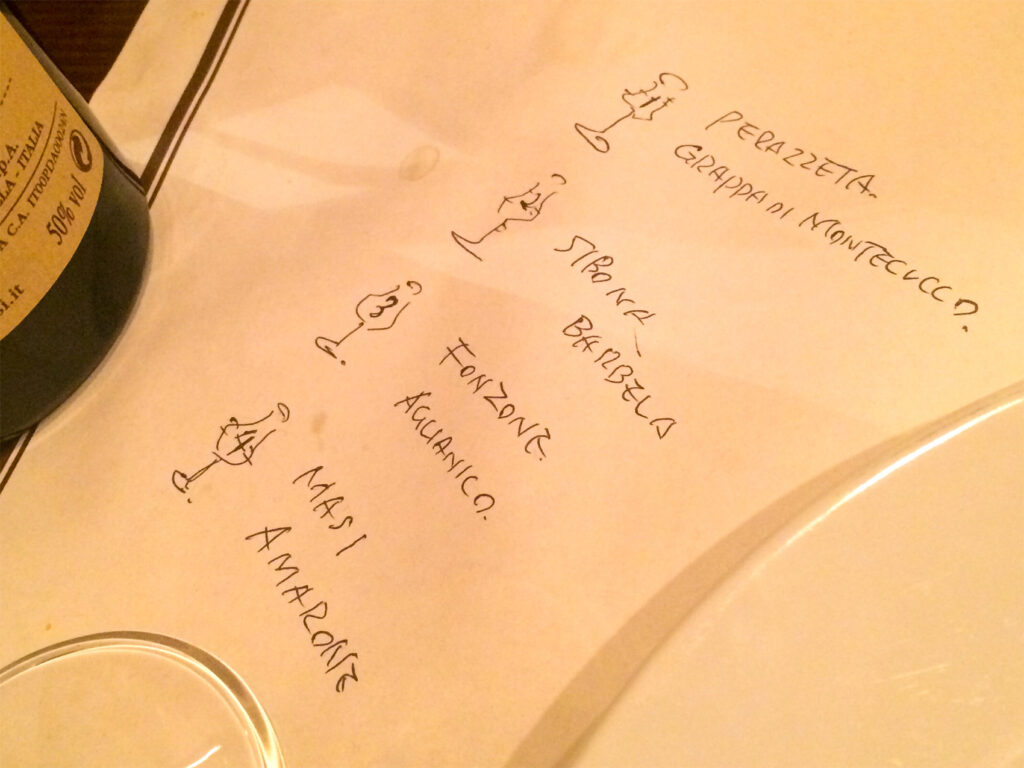 P.A.
LA - ITALIA
A C.A. IT00PDA00024N
50% vol
si.it
1
PERAZZETA.
GRAPPA DI MONTECUCCO.
2
SIBONA
BARBELA
3
FONZONE.
AGLIANICO.
4
MASI
AMARONE